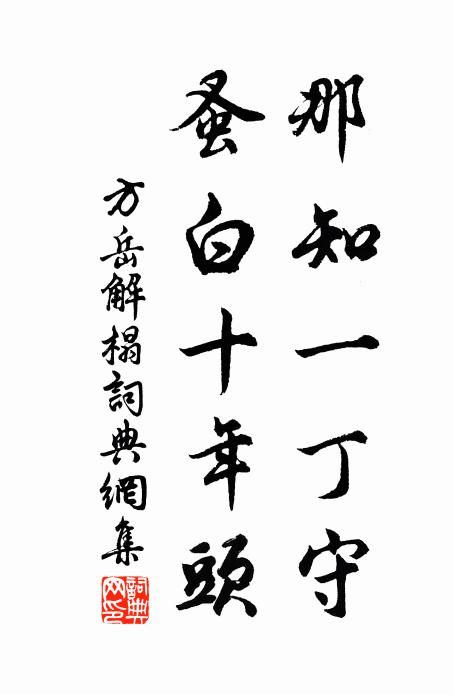 那知一丁守
蚤白十年頭
方岳解榻詞典網集
詞典網印